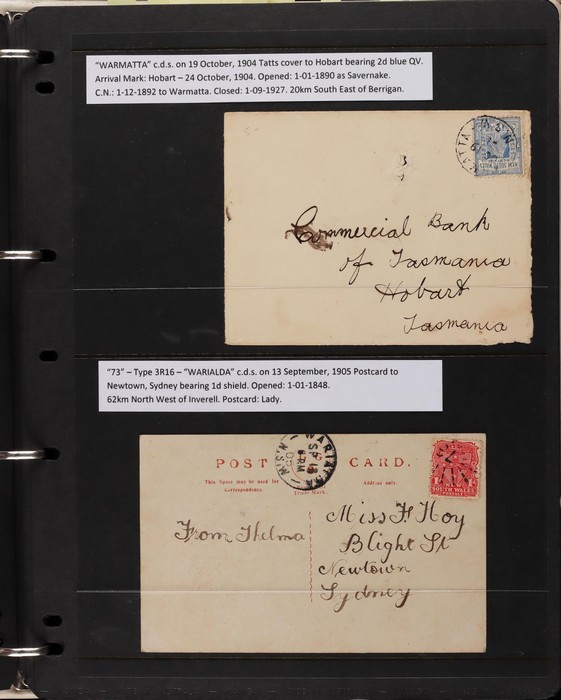 "WARMATTA" c.d.s. on 19 October, 1904 Tatts cover to Hobart bearing 2d blue QV.
Arrival Mark: Hobart – 24 October, 1904. Opened: 1-01-1890 as Savernake.
C.N.: 1-12-1892 to Warmatta. Closed: 1-09-1927. 20km South East of Berrigan.
Commercial Bank
of Tasmania
Hobart
Tasmania
"73" – Type 3R16 – "WARIALDA" c.d.s. on 13 September, 1905 Postcard to
Newtown, Sydney bearing 1d shield. Opened: 1-01-1848.
62km North West of Inverell. Postcard: Lady.
WARIALDA
SP 13
05
N.S.W
POST CARD.
This Space may be used for
Correspondence.
Trade Mark.
Address only.
SOUTH WALES
From Thelma
Miss F Hoy
Blight St
Newtown
Sydney